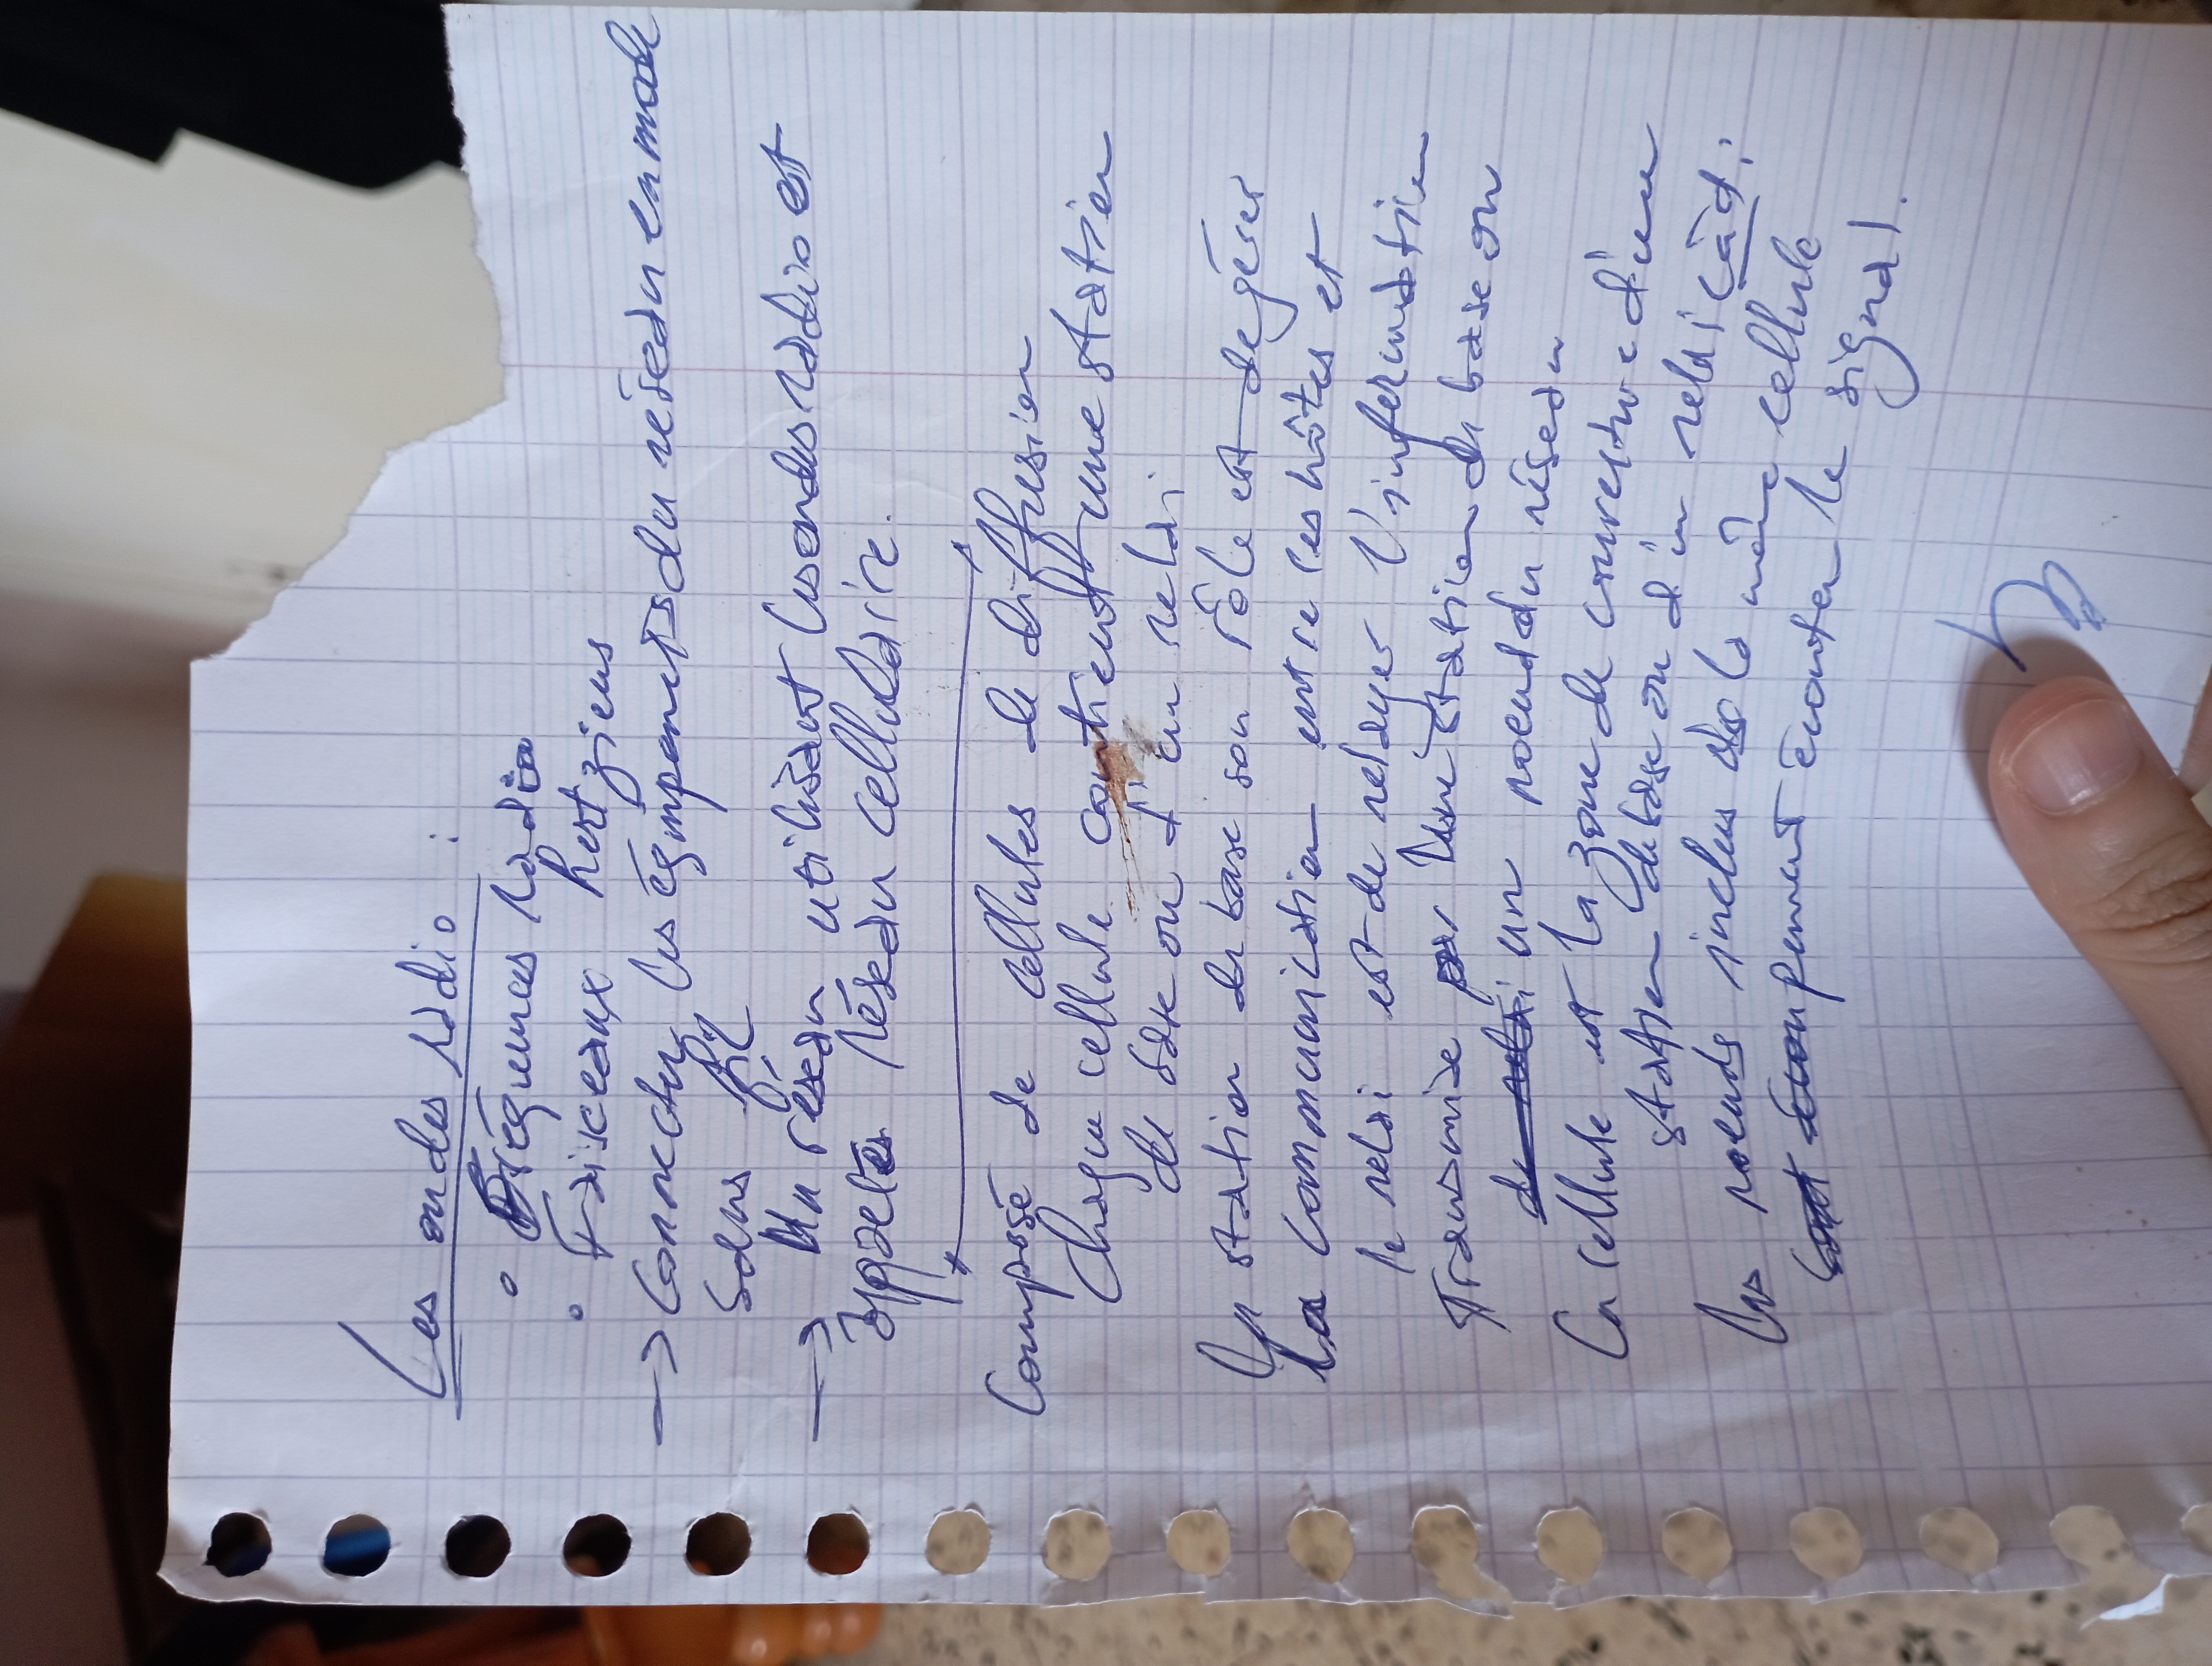 Les ondes radio :
• Fréquences radio
• Faisceaux hertziens
→ Connecter les équipements du réseau en mode
sans fil
→ Un réseau utilisant les ondes radio est
appelés réseau cellulaire.
Composé de cellules de diffusion
Chaque cellule contient une station
de base ou d'un relai
La station de base son rôle est de gérer
la communication entre les hôtes et
le relai est de relayer l'information
Transmise par une station de base ou
un noeud du réseau
La cellule est la zone de couverture d'une
station de base ou d'un relai càd :
les noeuds inclus ds la même cellule
peuvent écouter le signal.